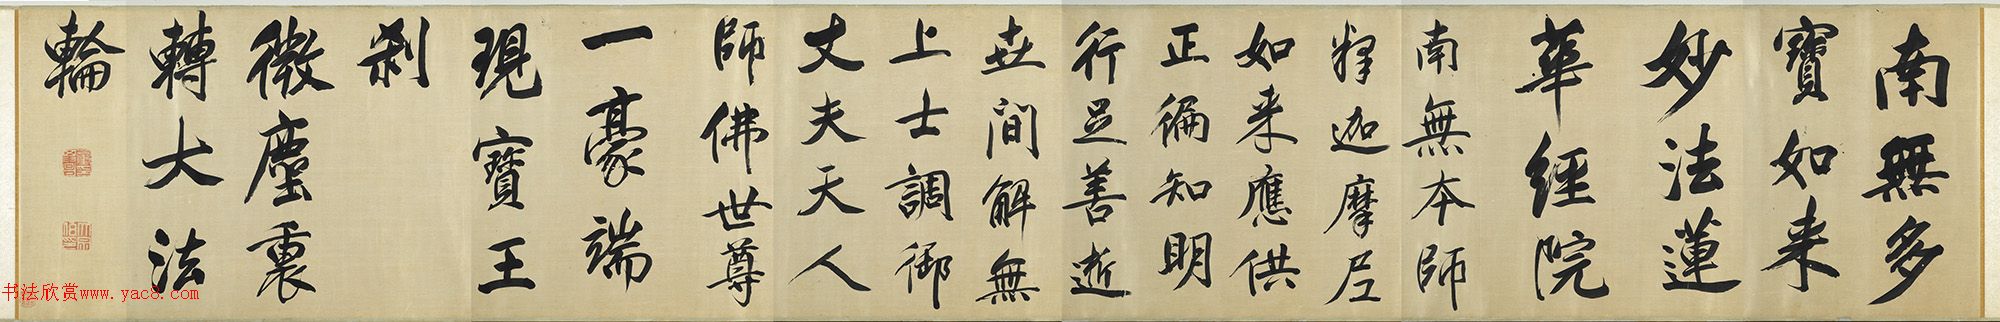 南無多
寶如来
妙法蓮
華經院
南無本師
釋迦摩尼
如来應供
正徧知明
行足善逝
世間解無
上士調御
丈夫天人
師佛世尊
一豪端
現寶王
刹
微塵裏
轉大法
輪
书法欣赏www.yac8.com